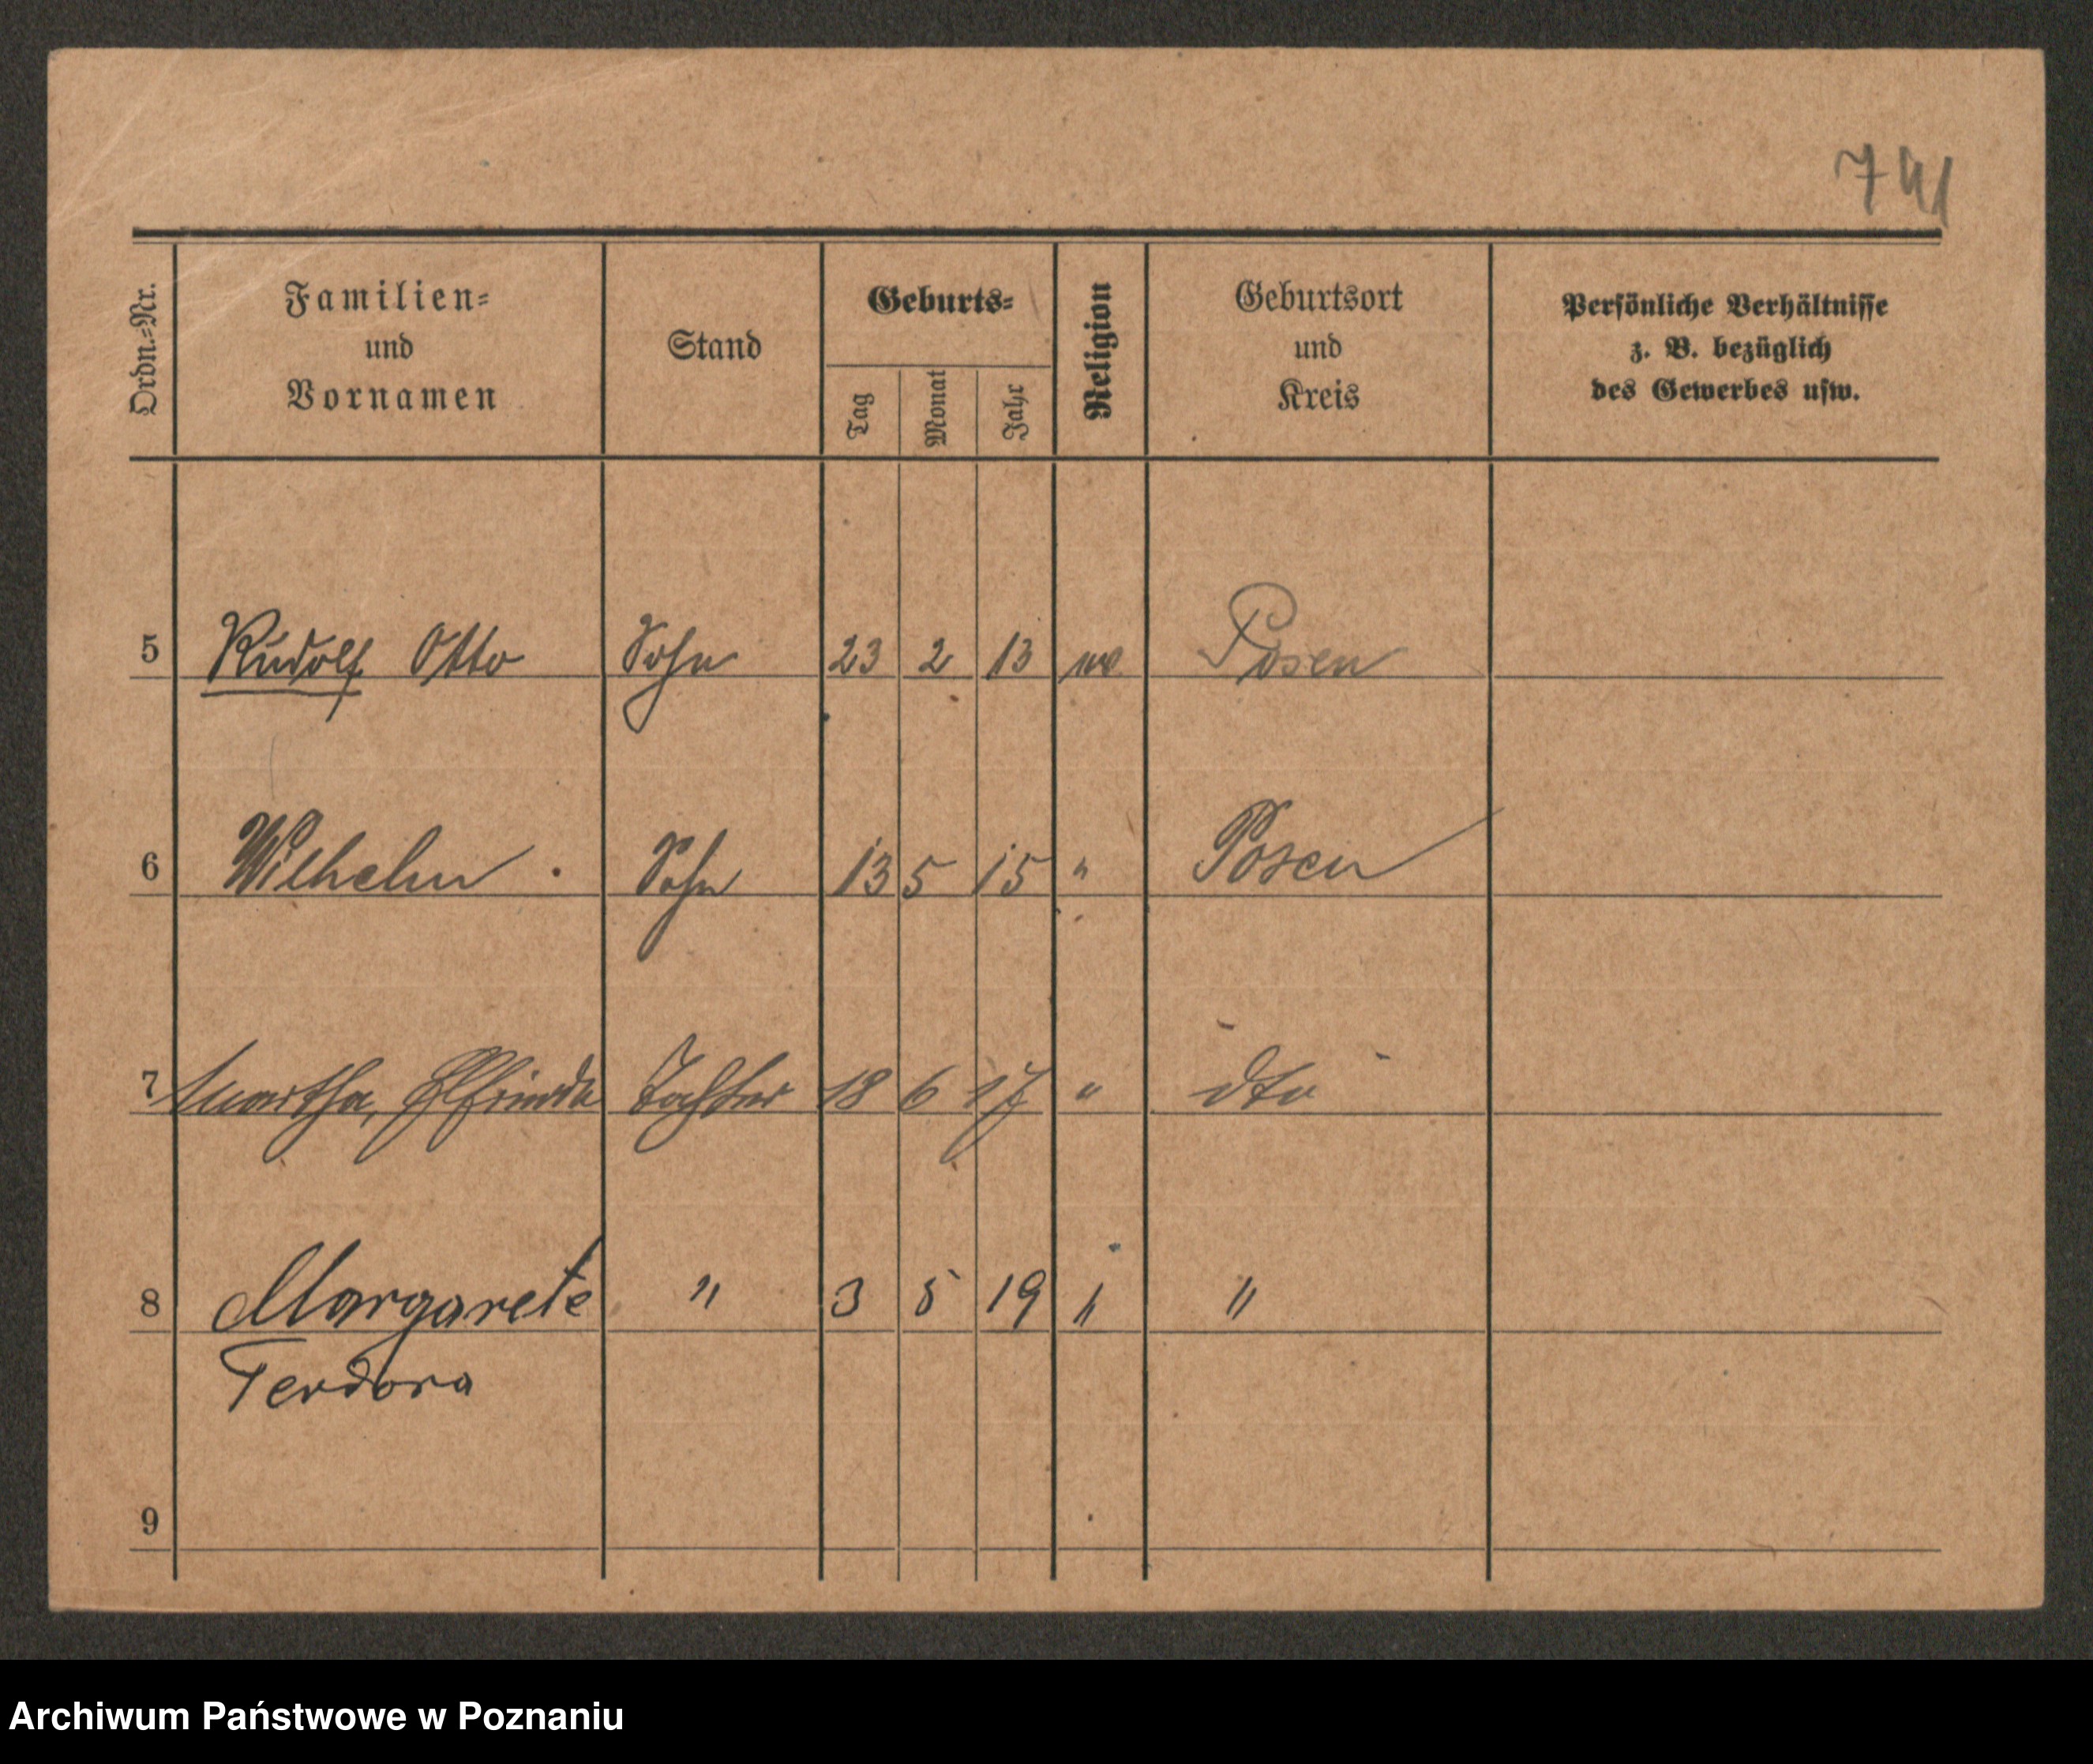 741
Ordn.=Nr. Familien= und Vornamen Stand Geburts= Tag Monat Jahr Religion Geburtsort und Kreis Persönliche Verhältnisse z. B. bezüglich des Gewerbes usw.
5 Rudolf Otto Sohn 23 2 13 Posen
6 Wilhelm . Sohn 13 5 15 " Posen
7 Martha, Elfriede Tochter 18 6 17 " dto
8 Margarete " 3 5 19 " "
Terdora
9
Archiwum Państwowe w Poznaniu